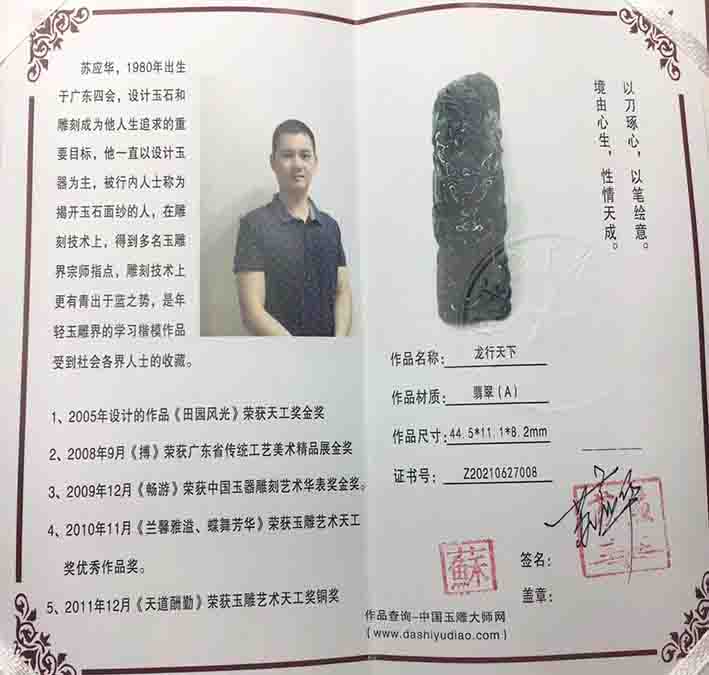 苏应华，1980年出生
于广东四会，设计玉石和
雕刻成为他人生追求的重
要目标，他一直以设计玉
器为主，被行内人士称为
揭开玉石面纱的人，在雕
刻技术上，得到多名玉雕
界宗师指点，雕刻技术上
更有青出于蓝之势，是年
轻玉雕界的学习楷模作品
受到社会各界人士的收藏。
1、2005年设计的作品《田园风光》荣获天工奖金奖
2、2008年9月《搏》荣获广东省传统工艺美术精品展金奖
3、2009年12月《畅游》荣获中国玉器雕刻艺术华表奖金奖。
4、2010年11月《兰馨雅溢、蝶舞芳华》荣获玉雕艺术天工
奖优秀作品奖。
5、2011年12月《天道酬勤》荣获玉雕艺术天工奖铜奖
以刀琢心，以笔绘意。
境由心生，性情天成。
作品名称：龙行天下
作品材质：翡翠(A)
作品尺寸：44.5*11.1*8.2mm
证书号：Z20210627008
签名：
盖章：
蘇
作品查询-中国玉雕大师网
(www.dashiyudiao.com)